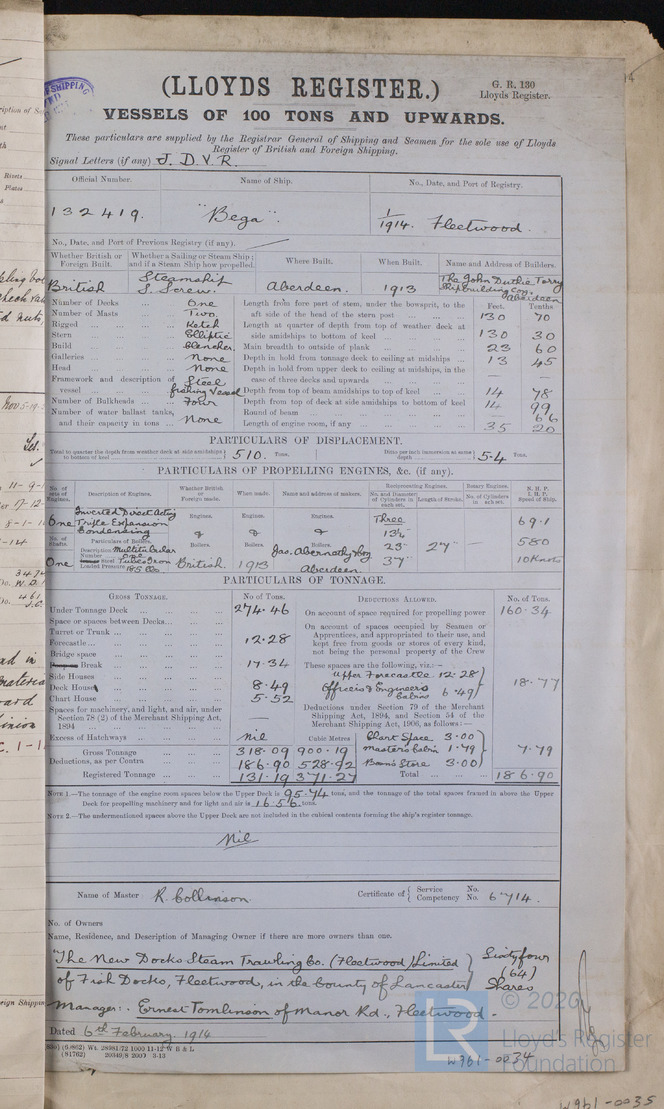 (LLOYDS REGISTER.)
G. R. 130
Lloyds Register.
VESSELS OF 100 TONS AND UPWARDS.
These particulars are supplied by the Registrar General of Shipping and Seamen for the sole use of Lloyds
Register of British and Foreign Shipping.
Signal Letters (if any) J. D. V. R.
Official Number. Name of Ship. No., Date, and Port of Registry.
132419. "Bega". 1/1914. Fleetwood.
No., Date, and Port of Previous Registry (if any).
Whether British or Foreign Built. Whether a Sailing or Steam Ship; and if a Steam Ship how propelled. Where Built. When Built. Name and Address of Builders.
British Steamship S. Screw. Aberdeen. 1913 The John Duthie Torry Shipbuilding Coy. Aberdeen
Number of Decks One
Number of Masts Two.
Rigged Ketch
Stern Elliptic
Build Clencher.
Galleries None
Head None
Framework and description of vessel Steel fishing Vessel
Number of Bulkheads Four
Number of water ballast tanks, and their capacity in tons None
Feet. Tenths.
Length from fore part of stem, under the bowsprit, to the aft side of the head of the stern post 130 70
Length at quarter of depth from top of weather deck at side amidships to bottom of keel 130 30
Main breadth to outside of plank 23 60
Depth in hold from tonnage deck to ceiling at midships 13 45
Depth in hold from upper deck to ceiling at midships, in the case of three decks and upwards —
Depth from top of beam amidships to top of keel 14 78
Depth from top of deck at side amidships to bottom of keel 14 99
Round of beam — 66
Length of engine room, if any 35 20
PARTICULARS OF DISPLACEMENT.
Total to quarter the depth from weather deck at side amidships to bottom of keel 510. Tons.
Ditto per inch immersion at same depth 5.4 Tons.
PARTICULARS OF PROPELLING ENGINES, &c. (if any).
No. of sets of Engines. Description of Engines. Whether British or Foreign made. When made. Name and address of makers. Reciprocating Engines. Rotary Engines. N. H. P. I. H. P. Speed of Ship.
No. and Diameter of Cylinders in each set. Length of Stroke. No. of Cylinders in each set.
One Inverted Direct Acting Triple Expansion Condensing
Engines. Engines. Engines.
Three 13½ 23" 37" 24" — 69.1 580 10 Knots
No. of Shafts. One
Particulars of Boilers. Boilers. Boilers. Boilers.
Description Multitubular
Number One
Iron or Steel
Loaded Pressure 185 lbs.
British. 1913 Jas. Abernethy & Coy Aberdeen
PARTICULARS OF TONNAGE.
GROSS TONNAGE. No. of Tons. DEDUCTIONS ALLOWED. No. of Tons.
Under Tonnage Deck 274.46
Space or spaces between Decks
Turret or Trunk
Forecastle 12.28
Bridge space
Break 17.34
Side Houses
Deck Houses 8.49
Chart House 5.52
Spaces for machinery, and light, and air, under Section 78 (2) of the Merchant Shipping Act, 1894 —
Excess of Hatchways nil
Cubic Metres
Gross Tonnage 318.09 900.19
Deductions, as per Contra 186.90 528.92
Registered Tonnage 131.19 371.27
On account of space required for propelling power 160.34
On account of spaces occupied by Seamen or Apprentices, and appropriated to their use, and kept free from goods or stores of every kind, not being the personal property of the Crew
These spaces are the following, viz.:—
Upper Forecastle 12.28
Officers & Engineers Cabins 6.49
18.77
Deductions under Section 79 of the Merchant Shipping Act, 1894, and Section 54 of the Merchant Shipping Act, 1906, as follows:—
Chart Space 3.00
Masters Cabin 1.79
Bosn's Store 3.00
7.79
Total 186.90
NOTE 1.—The tonnage of the engine room spaces below the Upper Deck is 95.74 tons, and the tonnage of the total spaces framed in above the Upper
Deck for propelling machinery and for light and air is 16.56 tons.
NOTE 2.—The undermentioned spaces above the Upper Deck are not included in the cubical contents forming the ship's register tonnage.
Nil
Name of Master R. Collinson. Certificate of Service No. Competency No. 6714.
No. of Owners
Name, Residence, and Description of Managing Owner if there are more owners than one.
"The New Docks Steam Trawling Co. (Fleetwood) Limited
of Fish Docks, Fleetwood, in the County of Lancaster
Sixty four (64) Shares
Manager: Ernest Tomlinson of Manor Rd., Fleetwood.
Dated 6th February 1914
(81762) 20349/8 2000 3-13
© 2020
Lloyd's Register
Foundation
LR
W961-0034
W961-0035